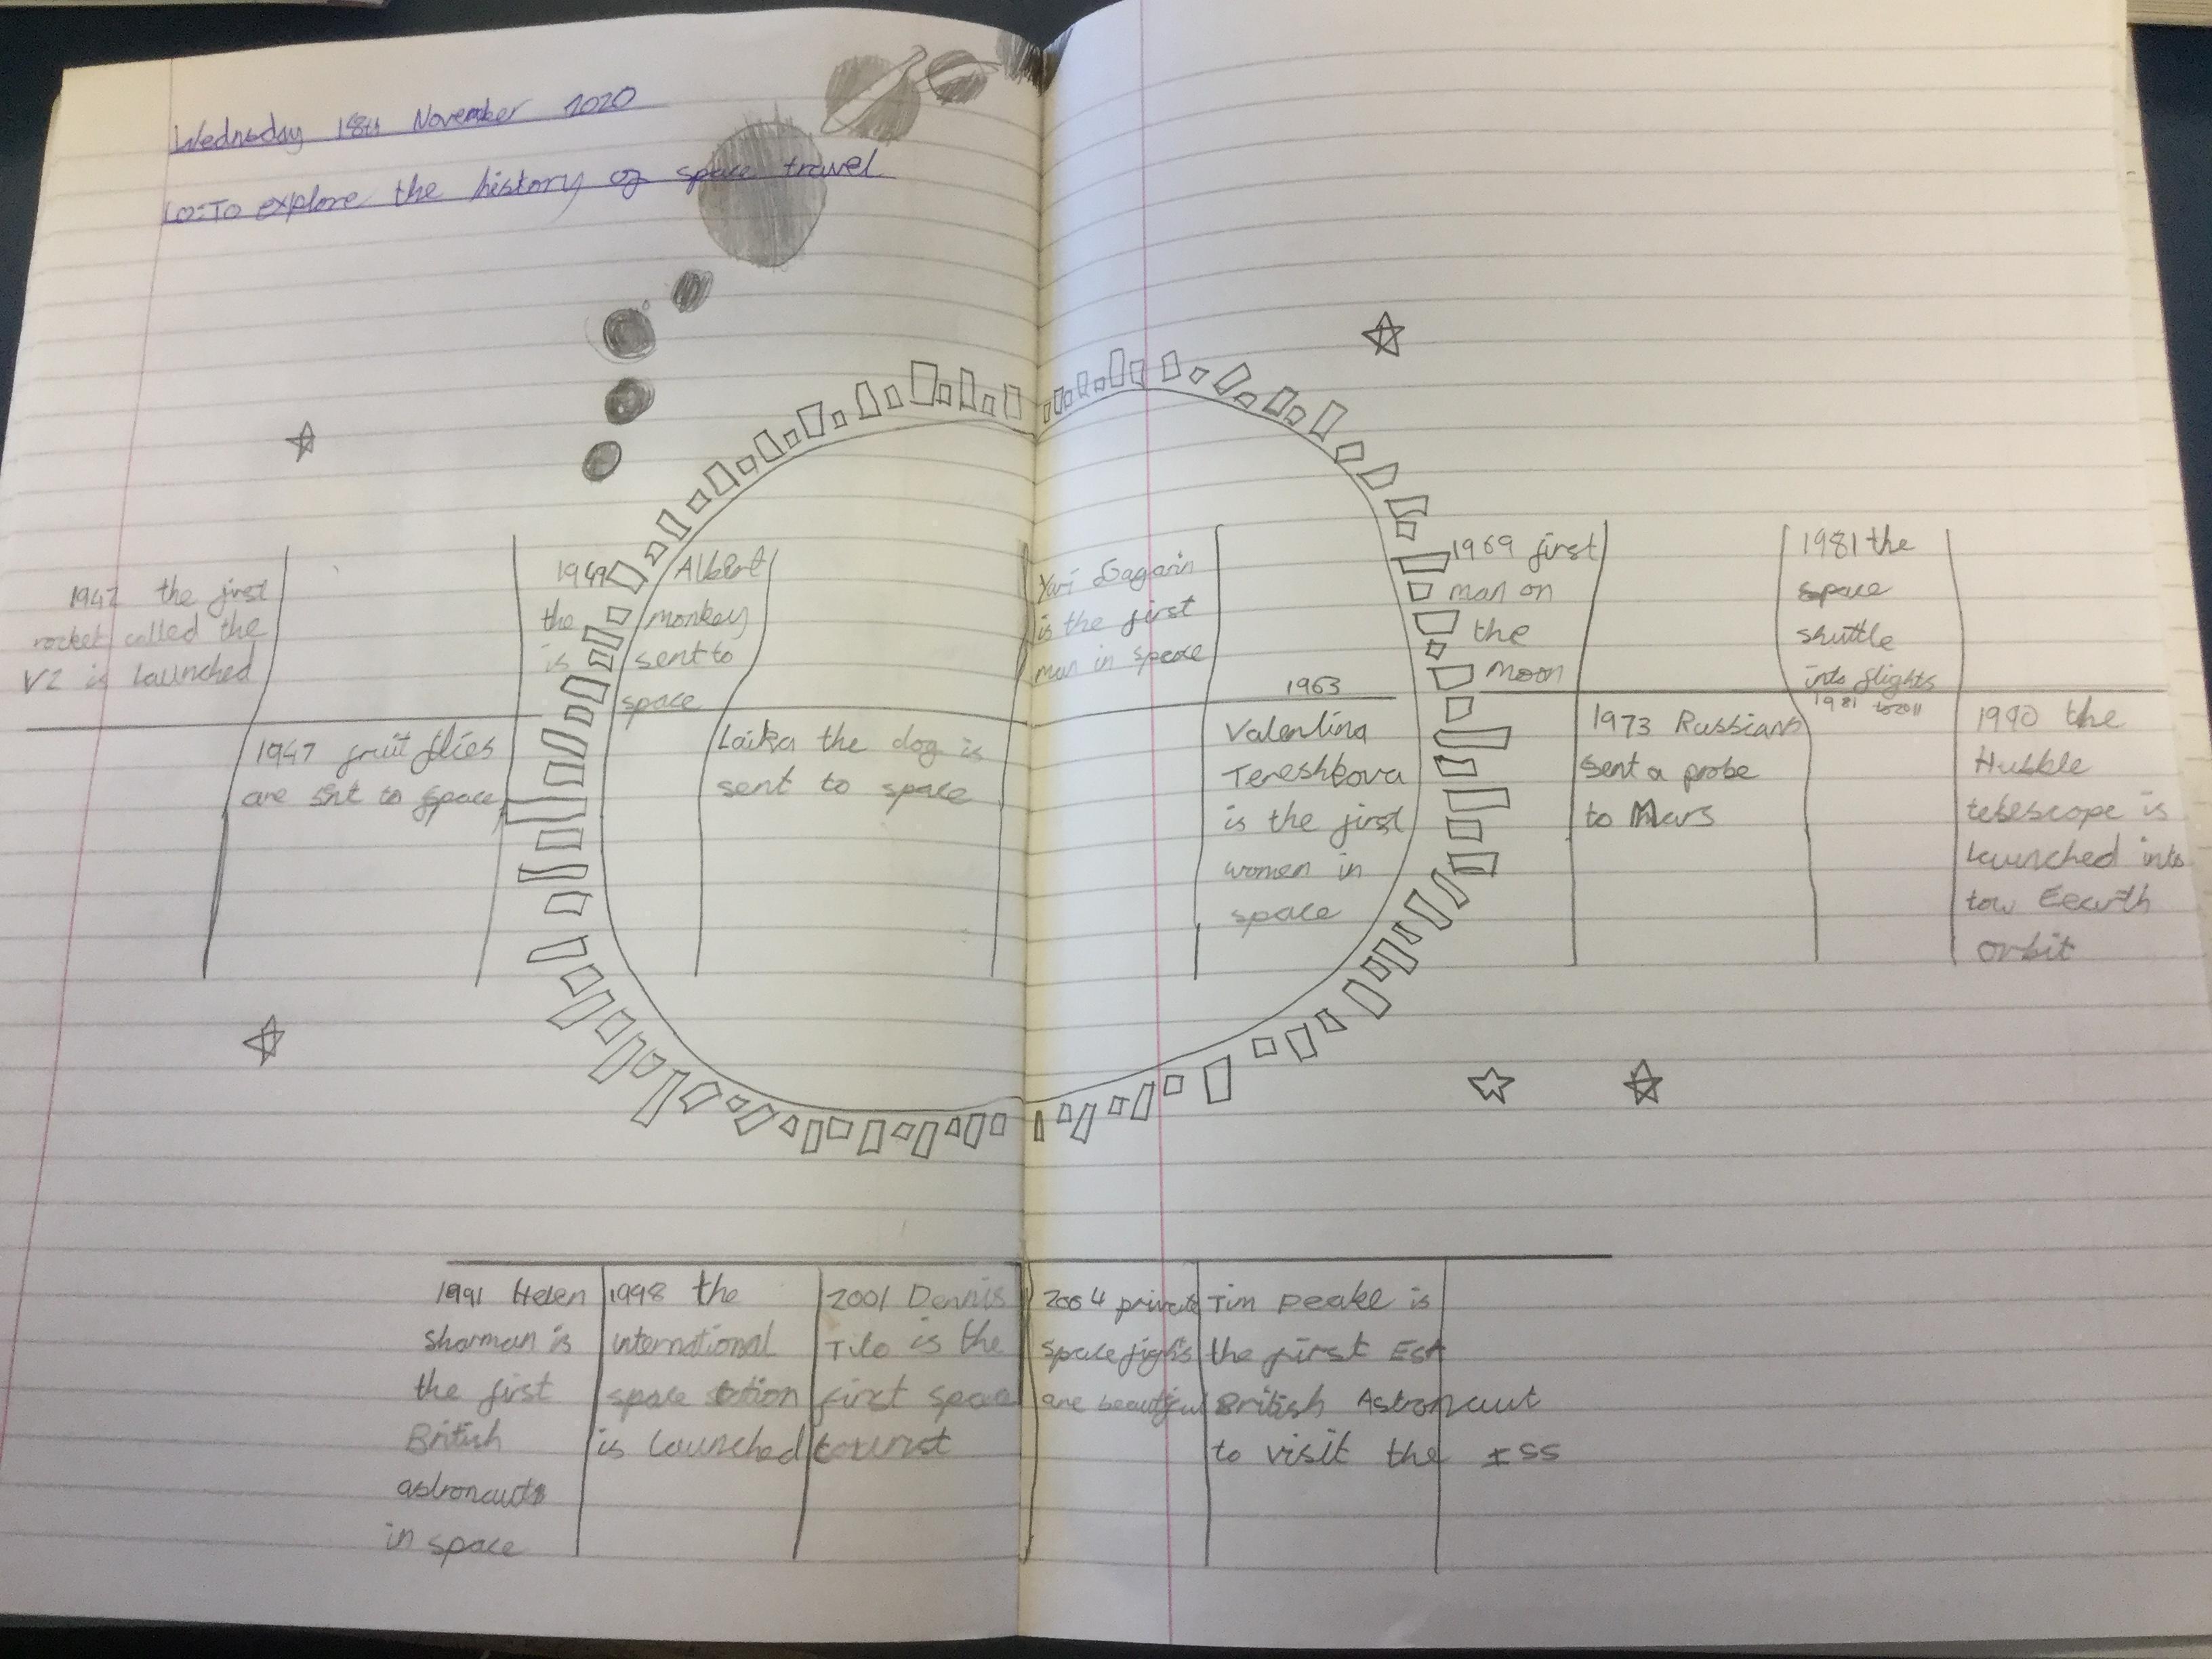 Wednsday 18th November 2020
LO:To explore the history of space travel
1942 the first
rocket called the
V2 is launched
1947 fruit flies
are sent to space
1949 Albert
the monkey
is sent to
space
Laika the dog is
sent to space
Yuri Gagarin
is the first
man in space
1963
Valentina
Tereshkova
is the first
women in
space
1969 first
man on
the
Moon
1973 Russians
sent a probe
to Mars
1981 the
space
shuttle
into flights
1981 to 2011
1990 the
Hubble
telescope is
launched into
low Eearth
orbit
1991 Helen
sharman is
the first
British
astronauts
in space
1998 the
international
space station
is launched
2001 Dennis
Tito is the
first space
tourist
2004 private
space
are
Tim peake is
the first ESA
British Astronaut
to visit the ISS